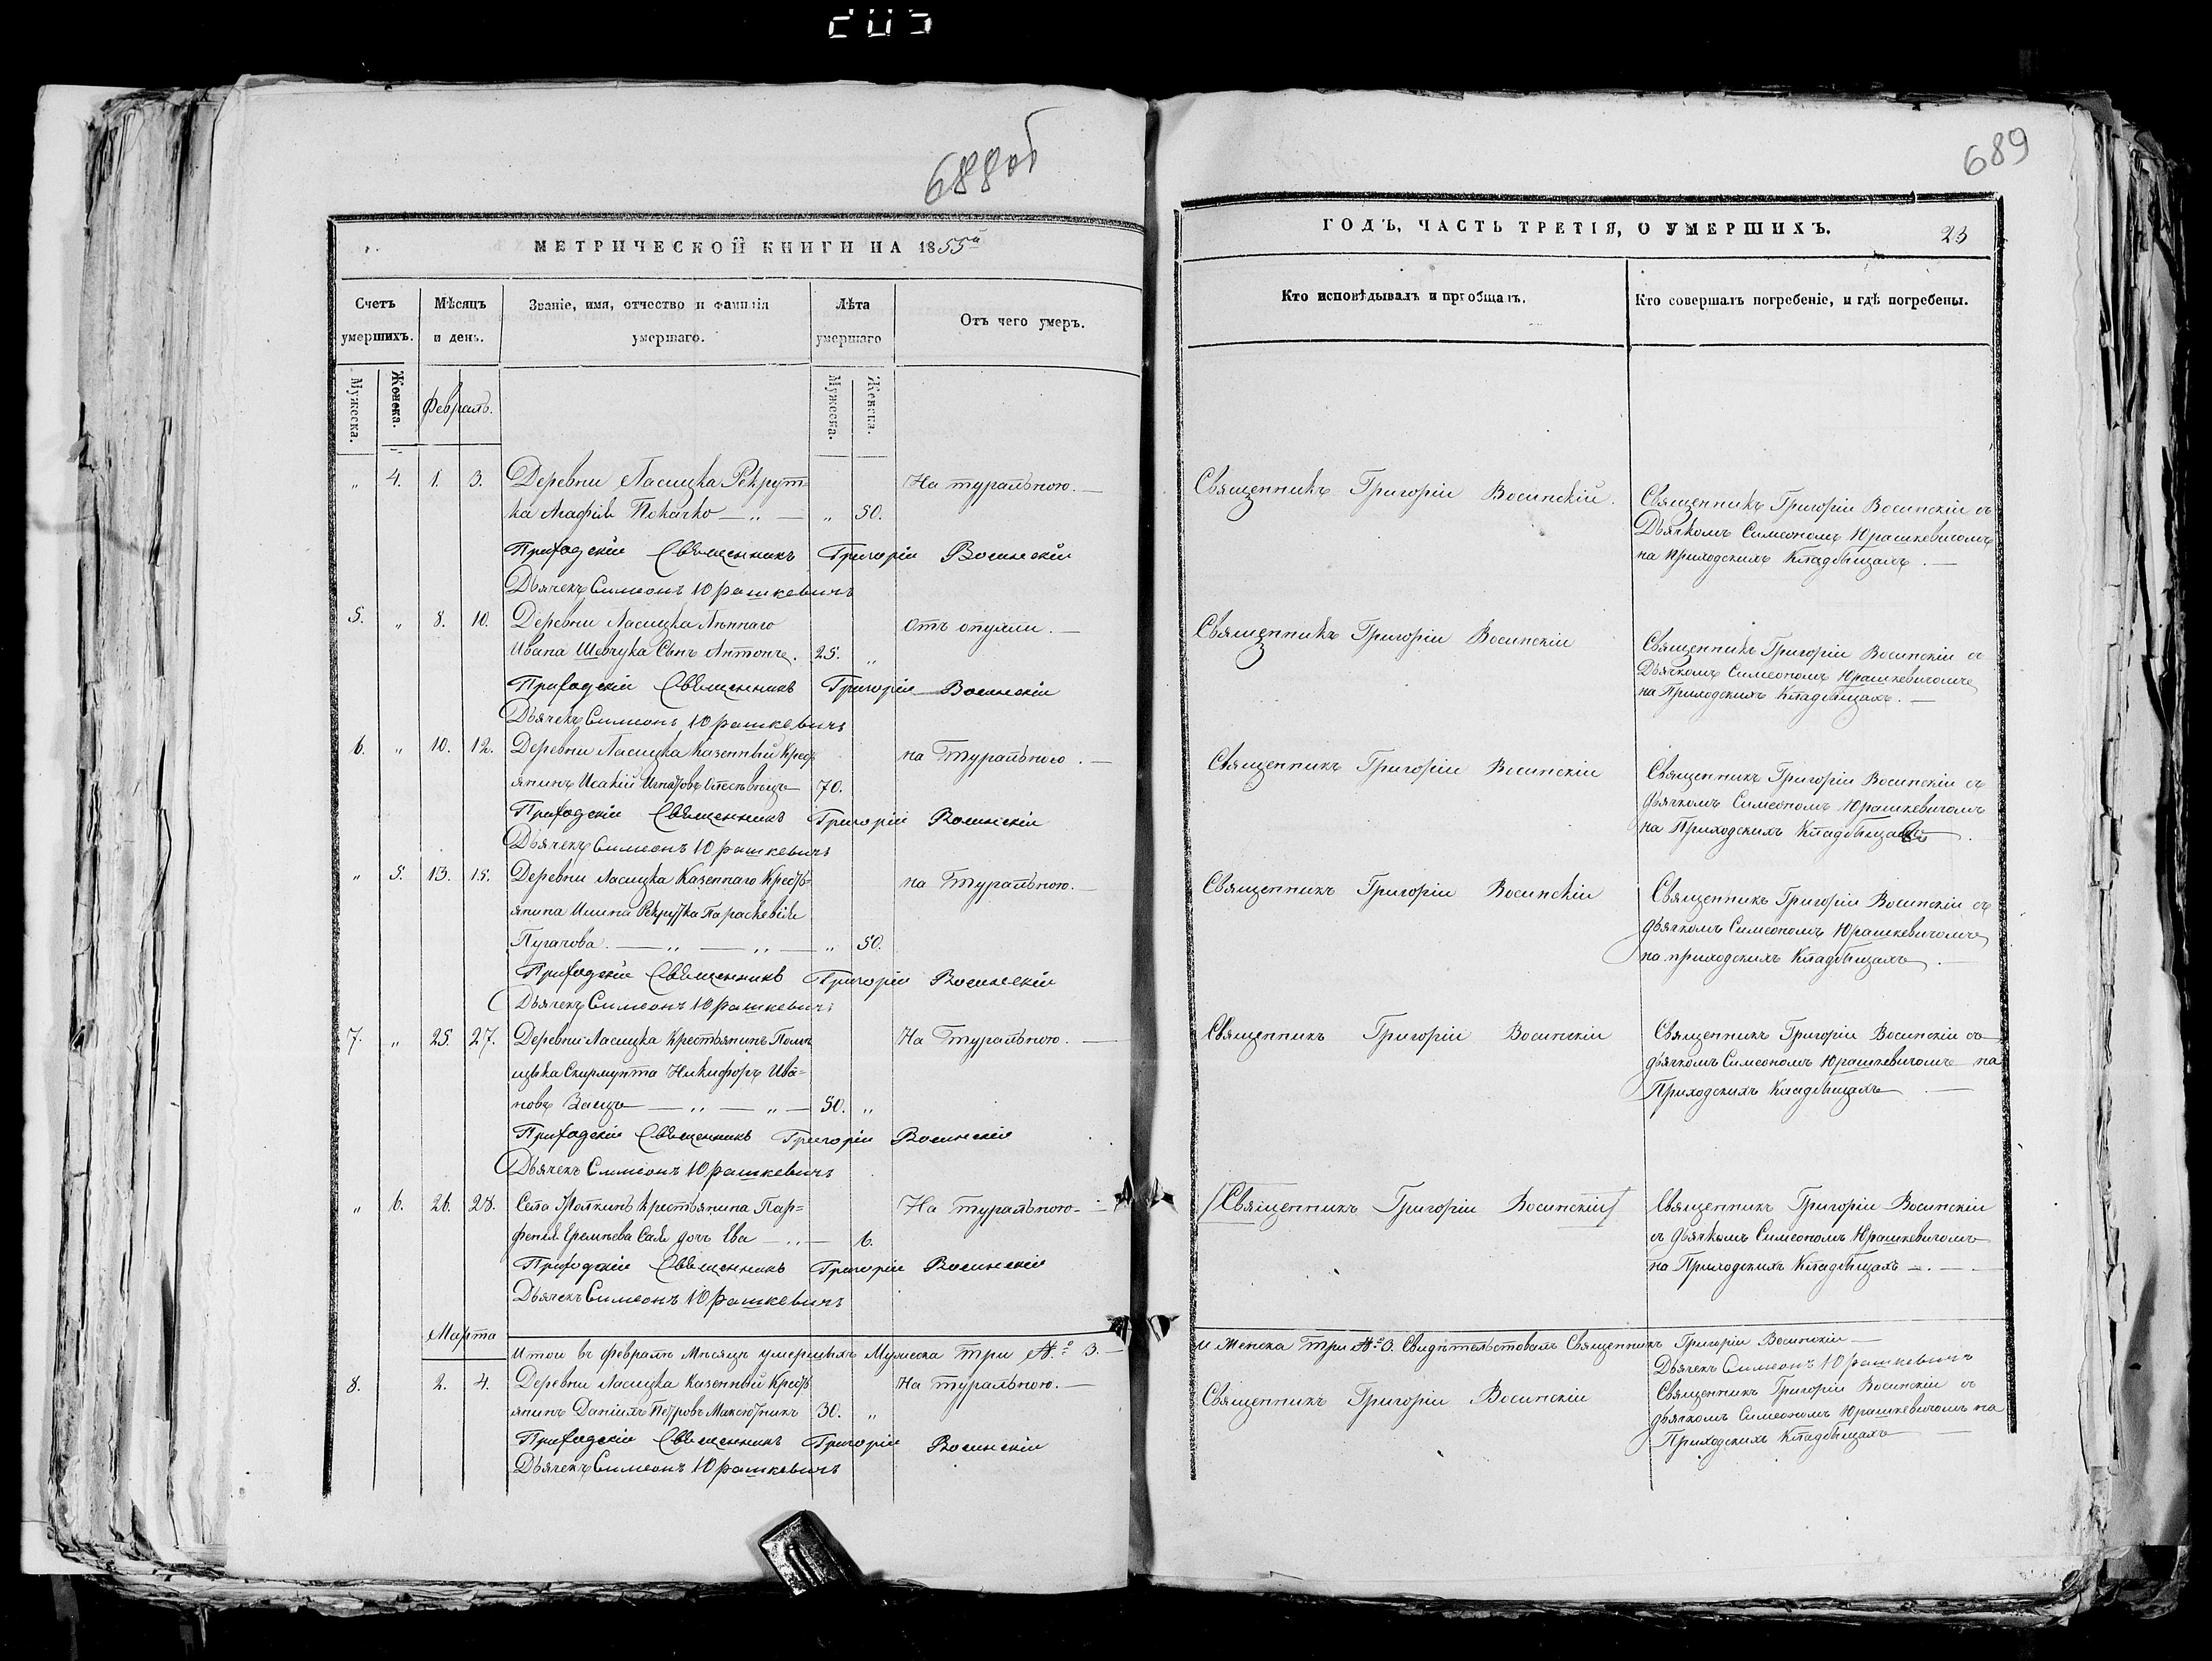 688 об
МЕТРИЧЕСКОЙ КНИГИ НА 1855й
Счетъ умершихъ.
Мѣсяцъ и день.
Званіе, имя, отчество и фамилія умершаго.
Лѣта умершаго
Отъ чего умеръ.
Мужеска. Женска.
Февраль.
Мужеска. Женска.
„ 4. 1. 3. Деревни Ласицка Рекрут- На туральною. —
ка Агафія Покачко — „ — „ 50.
Приходскій Священникъ Григорій Восинскій
Дьячекъ Симеонъ Юрашкевичъ
5. „ 8. 10. Деревни Ласицка Лѣтнаго отъ опухли. —
Ивана Шевчука Сынъ Антонъ. 25. „
Приходскій Священникъ Григорій Восинскій
Дьячекъ Симеонъ Юрашкевичъ
6. „ 10. 12. Деревни Ласицка Казенный Крест на Туральною. —
янинъ Исакій Игнатовъ 70.
Приходскій Священникъ Григорій Восинскій
Дьячекъ Симеонъ Юрашкевичъ
„ 5. 13. 15. Деревни Ласицка Казеннаго Кресть- на Туральною. —
янина Рекрутка Параскевія
Пугачова. — „ — „ — „ 50.
Приходскій Священникъ Григорій Восинскій
Дьячекъ Симеонъ Юрашкевичъ
7. „ 25. 27. Деревни Ласицка Крестьянинъ Помѣ На Туральною. —
щика Скирмунта Никифоръ Ива=
новъ Заяцъ — „ — „ — 50. „
Приходскій Священникъ Григорій Восинскій
Дьячекъ Симеонъ Юрашкевичъ
„ 6. 26. 28. Села Крестьянина Пар= На туральною —
фенія Еремѣева дочь Ева — „ — 6.
Приходскій Священникъ Григорій Восинскій
Дьячекъ Симеонъ Юрашкевичъ
Марта
Итого въ февралѣ Мѣсяцѣ умершихъ Мужеска три № 3. —
8. 2. 4. Деревни Ласицка Казенный Кресть На туральною. —
янинъ Даніилъ Петровъ 30. „
Приходскій Священникъ Григорій Восинскій
Дьячекъ Симеонъ Юрашкевичъ
689
ГОДЪ, ЧАСТЬ ТРЕТІЯ, О УМЕРШИХЪ.
23
Кто исповѣдывалъ и пріобщалъ.
Кто совершалъ погребеніе, и гдѣ погребены.
Священникъ Григорій Восинскій.
Священникъ Григорій Восинскій съ
Дьячкомъ Симеономъ Юрашкевичомъ
на приходскихъ Кладбищахъ. —
Священникъ Григорій Восинскій
Священникъ Григорій Восинскій съ
Дьячкомъ Симеономъ Юрашкевичомъ
на Приходскихъ Кладбищахъ. —
Священникъ Григорій Восинскій
Священникъ Григорій Восинскій съ
дьячкомъ Симеономъ Юрашкевичомъ
на Приходскихъ Кладбищахъ.
Священникъ Григорій Восинскій
Священникъ Григорій Восинскій съ
дьячкомъ Симеономъ Юрашкевичомъ
на приходскихъ Кладбищахъ. —
Священникъ Григорій Восинскій
Священникъ Григорій Восинскій съ
дьячкомъ Симеономъ Юрашкевичомъ на
Приходскихъ Кладбищахъ —
/Священникъ Григорій Восинскій/
Священникъ Григорій Восинскій
съ дьячкомъ Симеономъ Юрашкевичомъ
на Приходскихъ Кладбищахъ —
и Женска три № 3. Свидѣтельствовалъ Священникъ Григорій Восинскій —
Дьячекъ Симеонъ Юрашкевичъ
Священникъ Григорій Восинскій
Священникъ Григорій Восинскій съ
дьячкомъ Симеономъ Юрашкевичомъ на
Приходскихъ Кладбищахъ —